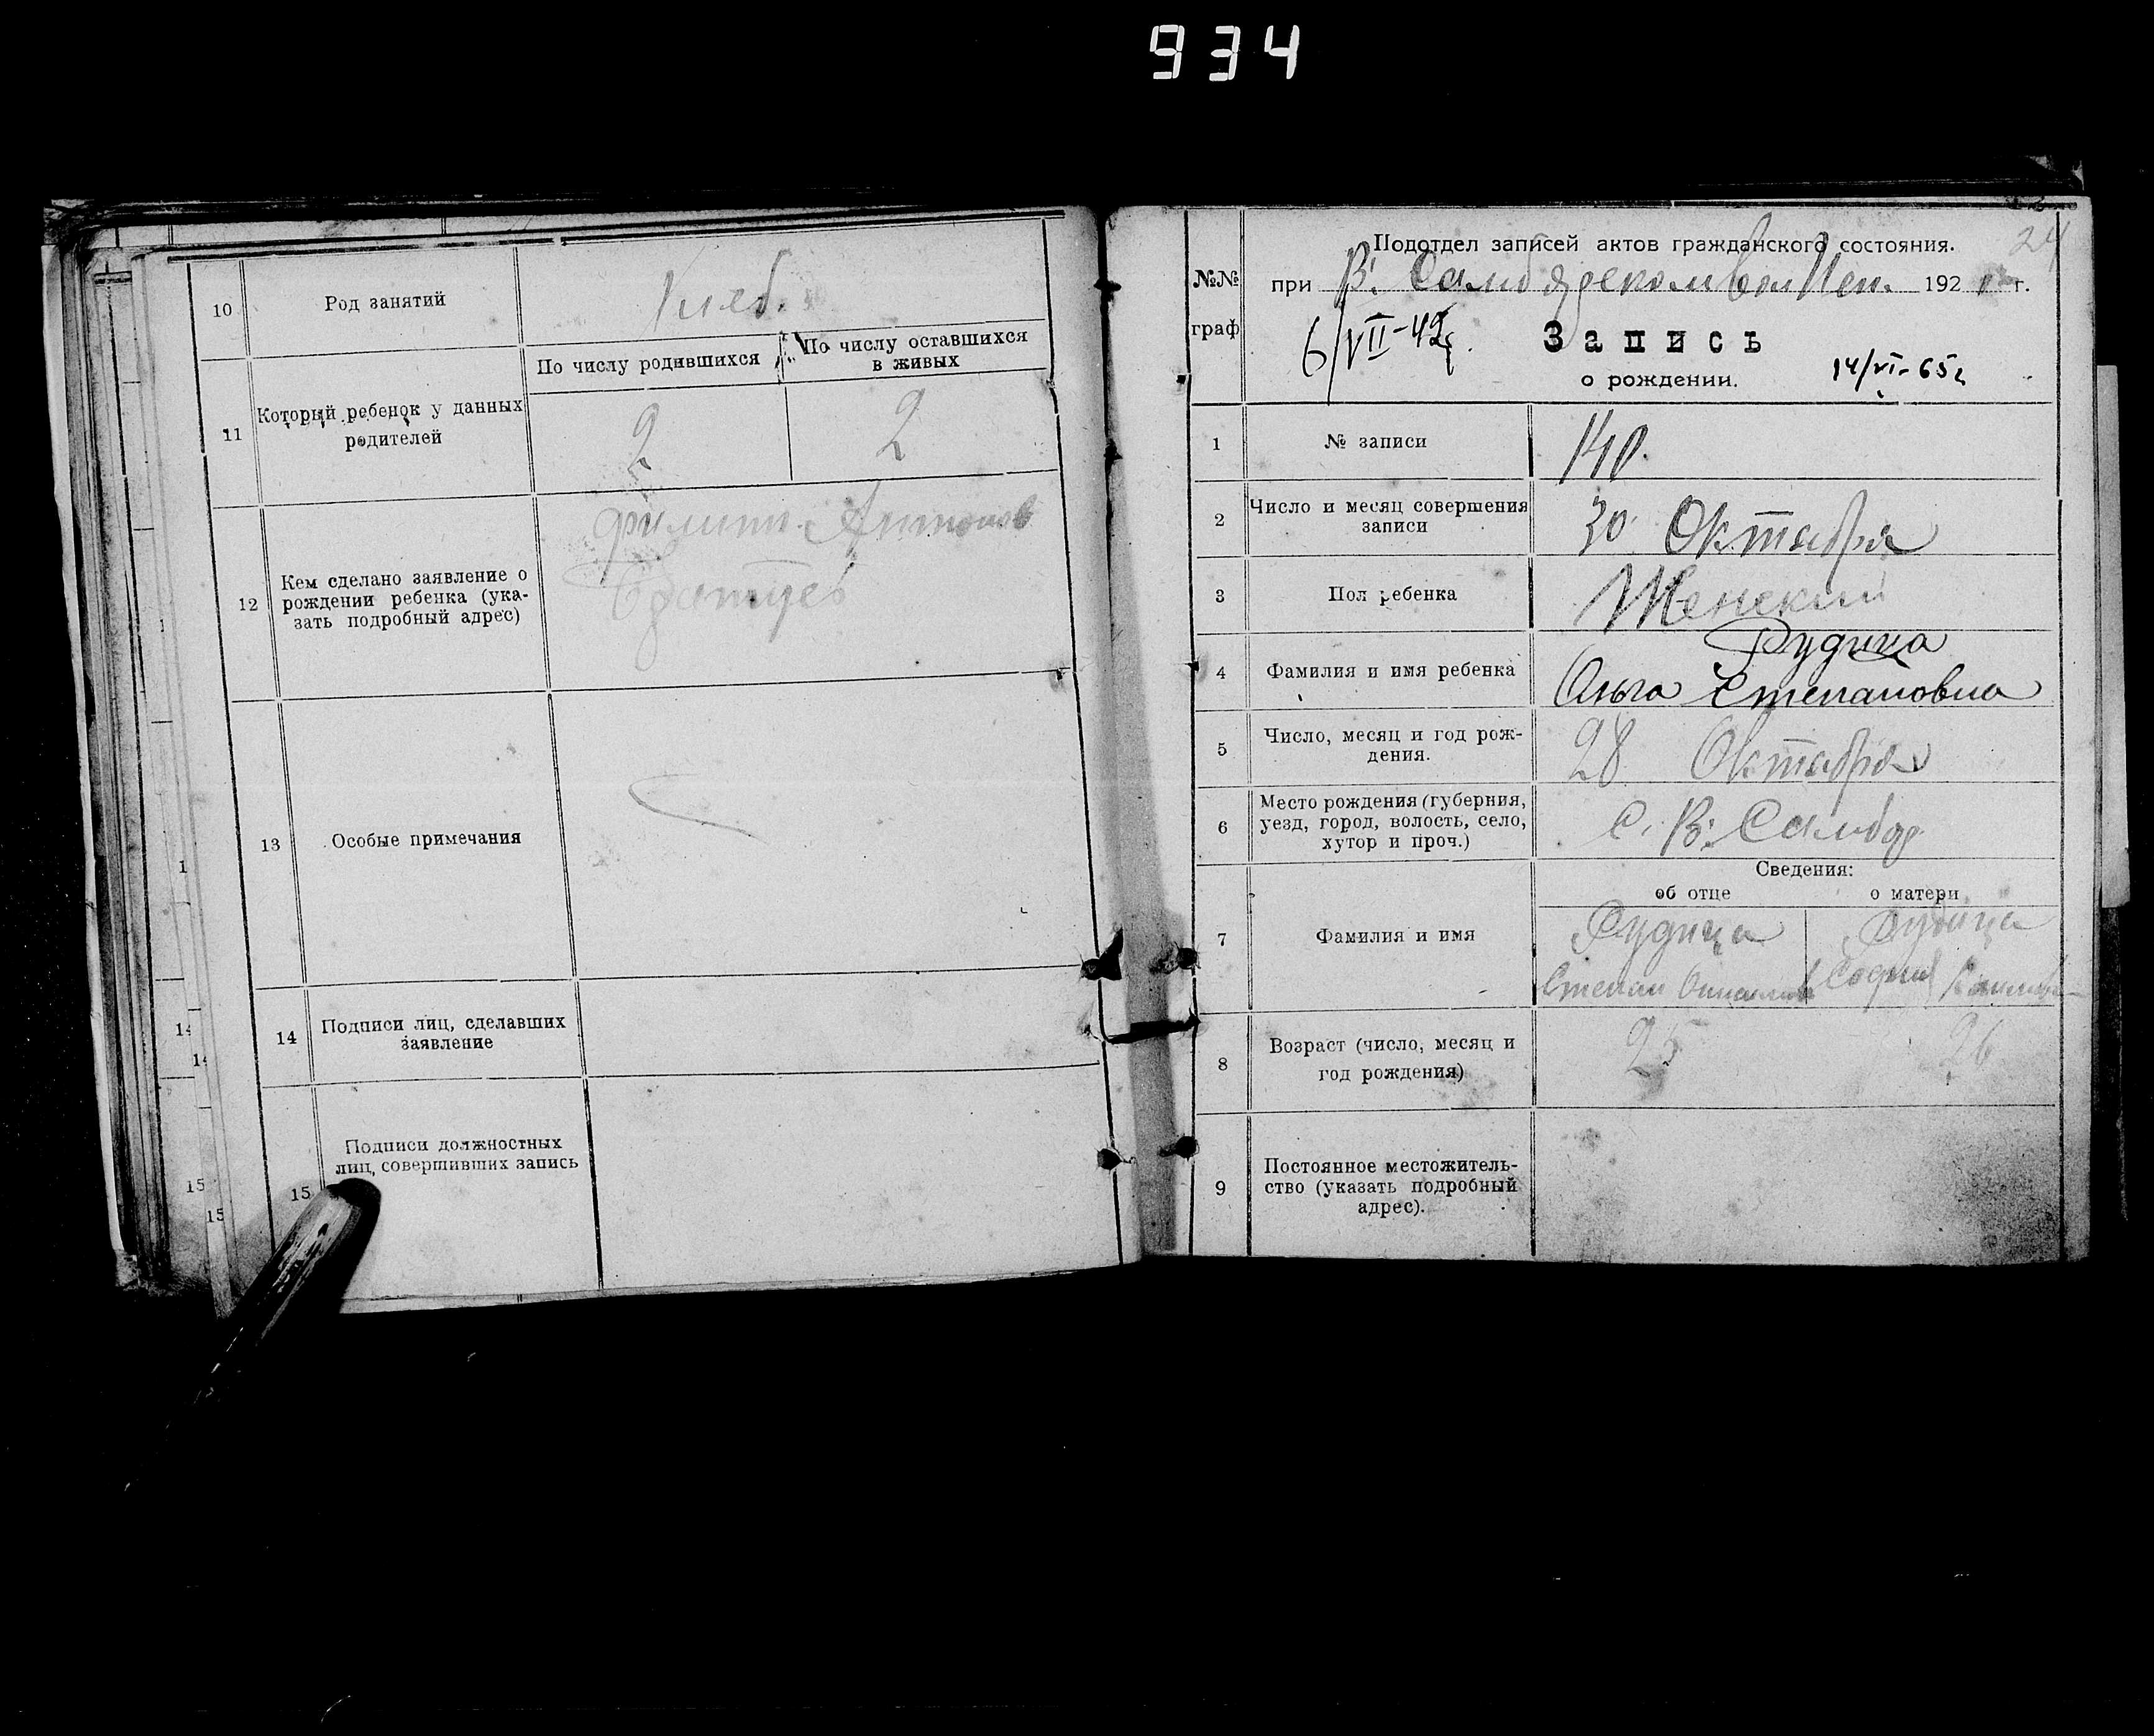 934
10
Род занятий
Хлеб.
11
Который ребенок у данных
родителей
По числу родившихся
По числу оставшихся
в живых
2
2
12
Кем сделано заявление о
рождении ребенка (ука-
зать подробный адрес)
Филипп Антонов
13
Особые примечания
14
Подписи лиц, сделавших
заявление
15
Подписи должностных
лиц, совершивших запись
1
14
14
15
15
24
Подотдел записей актов гражданского состояния.
№№
граф
при В. 192 г.
6/VII-42г.
Запись
о рождении.
14/VI-65г
1
№ записи
140.
2
Число и месяц совершения
записи
30 Октября
3
Пол ребенка
Женский
4
Фамилия и имя ребенка
Рудица
Ольга Степановна
5
Число, месяц и год рож-
дения.
28 Октября
6
Место рождения (губерния,
уезд, город, волость, село,
хутор и проч.)
С. В. Самбор
Сведения:
об отце
о матери
7
Фамилия и имя
Рудица
Степан
Рудица
София
8
Возраст (число, месяц и
год рождения)
25
26
9
Постоянное местожитель-
ство (указать подробный
адрес).